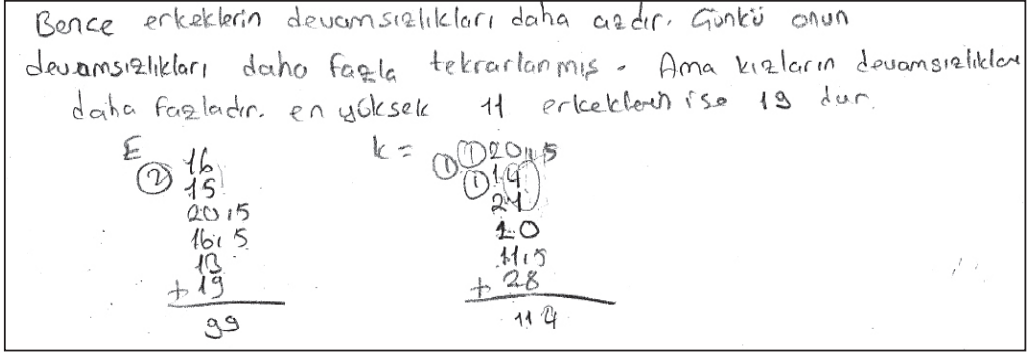 Bence erkeklerin devamsızlıkları daha azdır. Çünkü onun
devamsızlıkları daha fazla tekrarlanmış. Ama kızların devamsızlıkları
daha fazladır. en yüksek 11 erkeklerin ise 19 dur.
E k =
② 16 ① ① 20,5
15 ① 14
20,5 21
16,5 10
13 11,5
+ 19 + 28
99 114